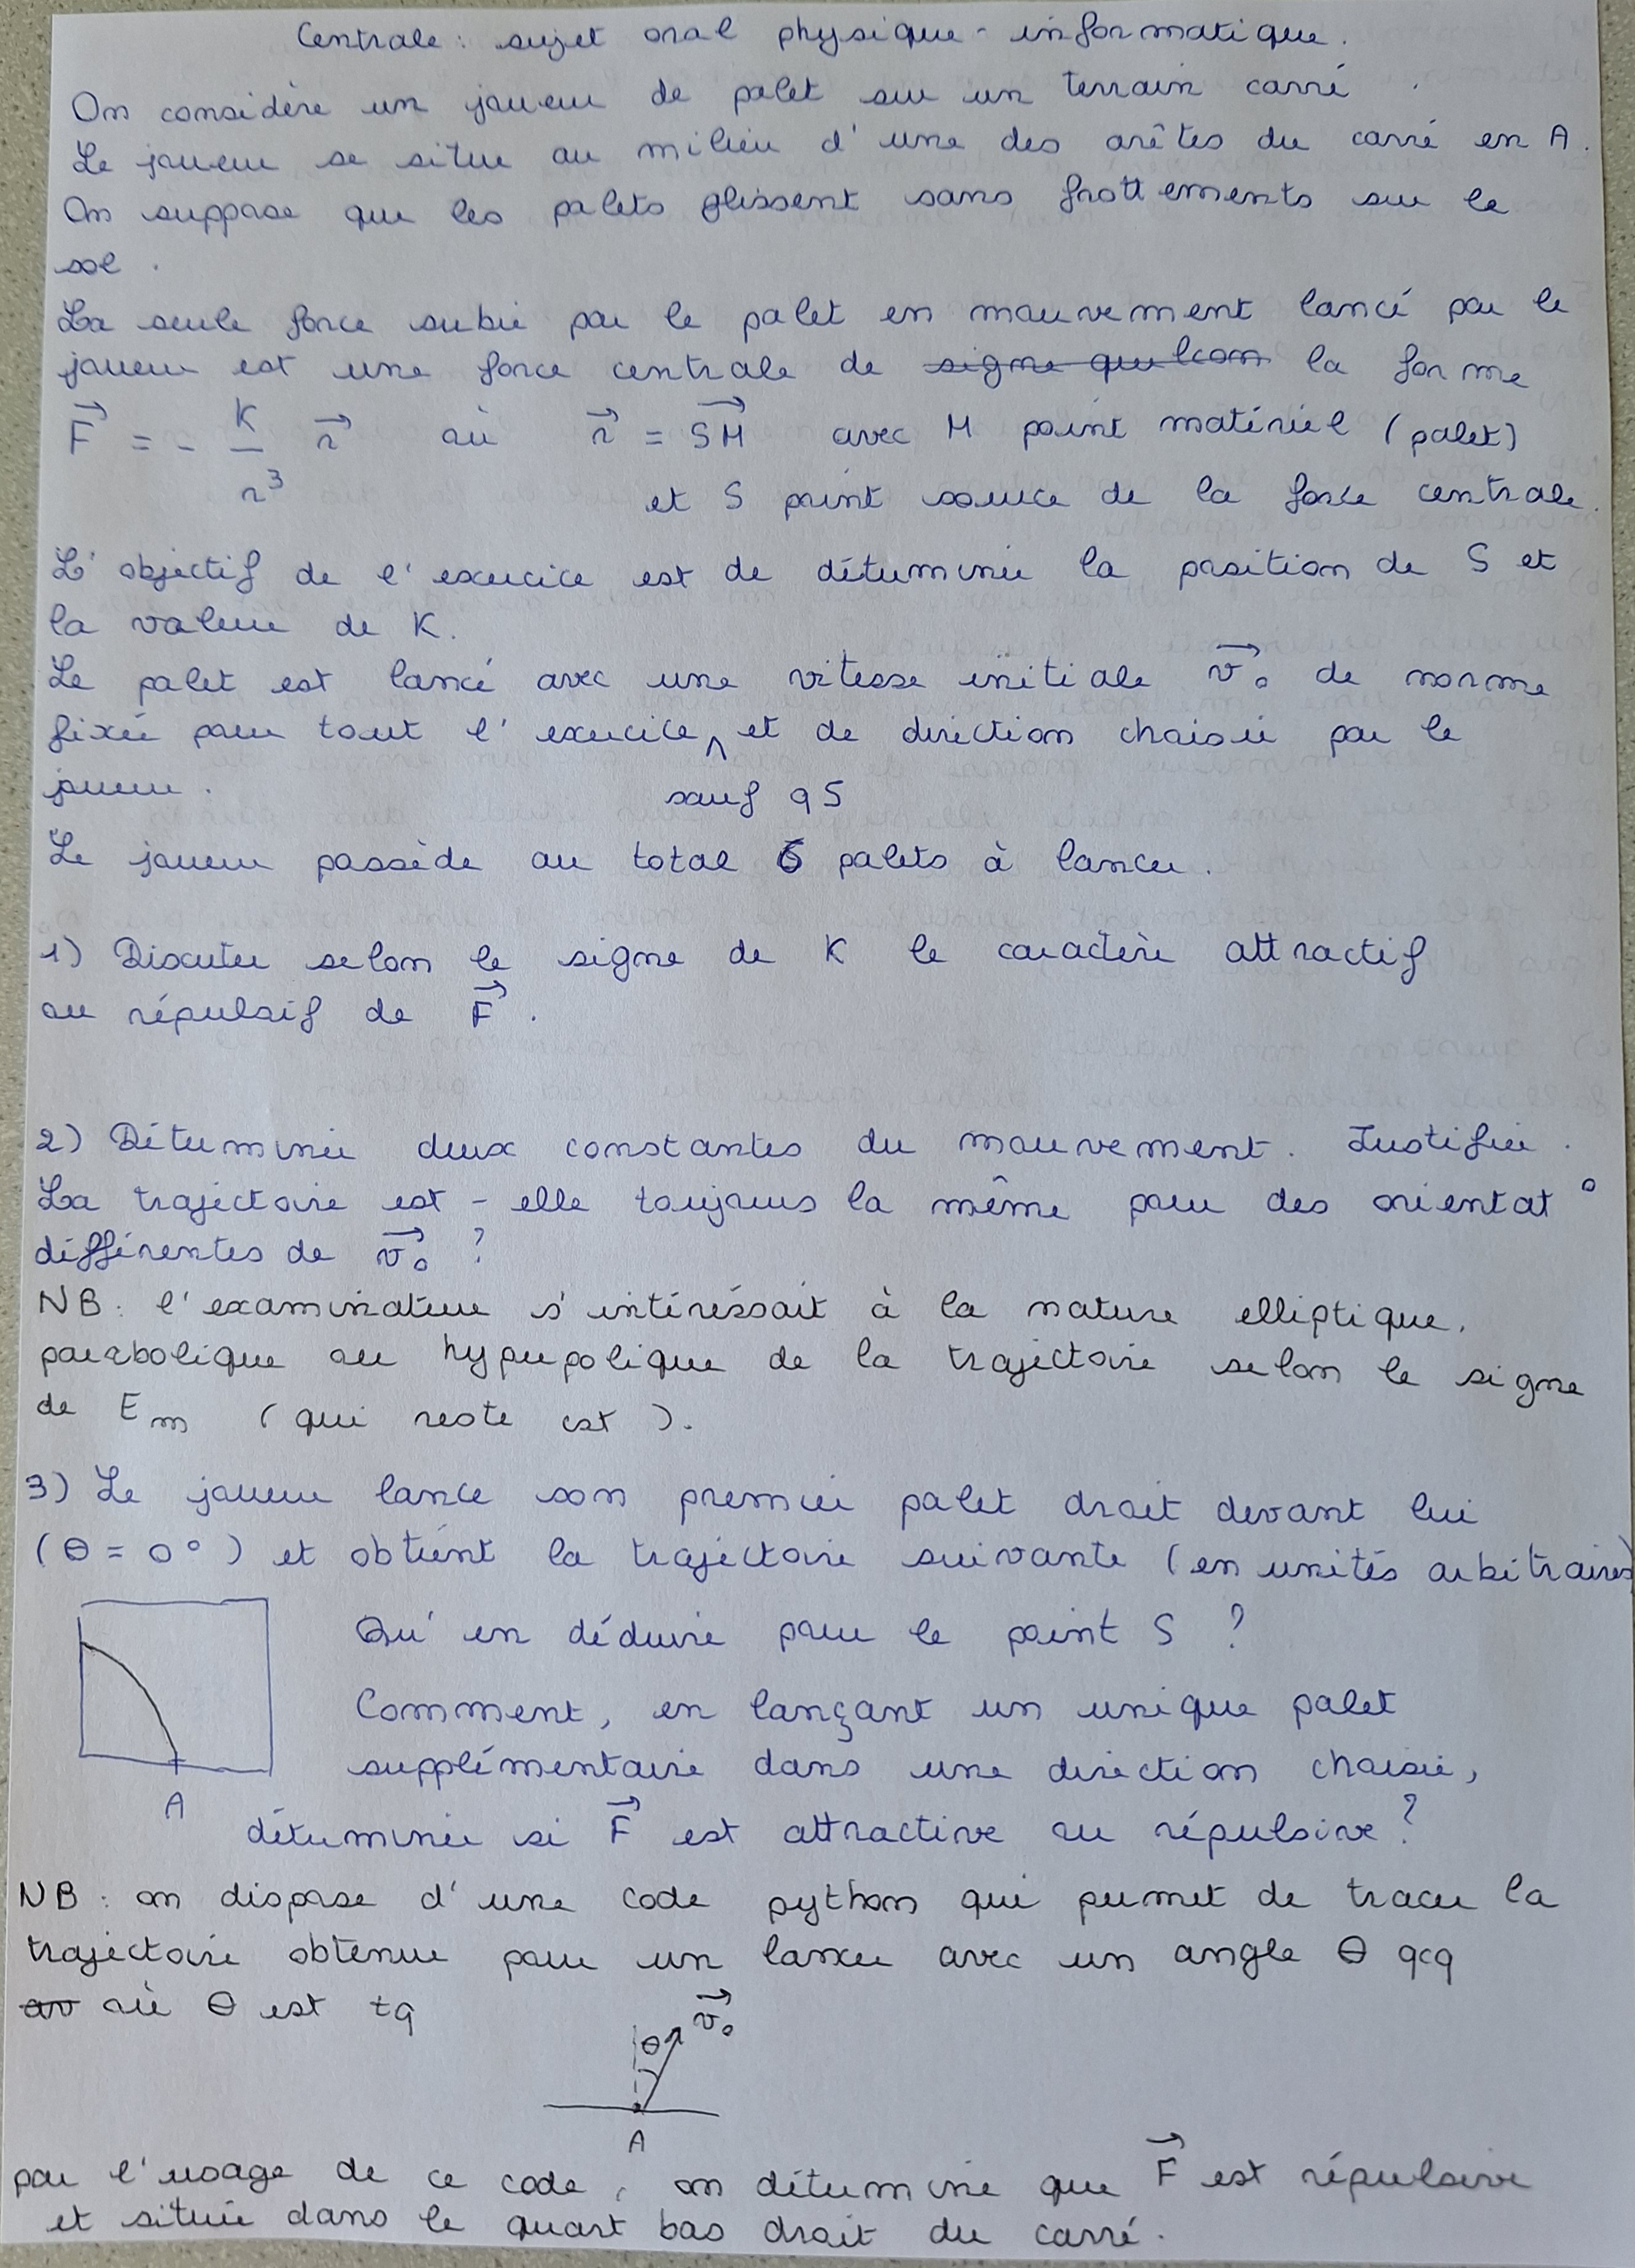 Centrale : sujet oral physique - informatique.
On considère un joueur de palet sur un terrain carré.
Le joueur se situe au milieu d'une des arêtes du carré en A.
On suppose que les palets glissent sans frottements sur le
sol.
La seule force subie par le palet en mouvement lancé par le
joueur est une force centrale de signe quelcon la forme
F = - K/r³ r où r = SM avec M point matériel (palet)
et S point source de la force centrale.
L'objectif de l'exercice est de déterminer la position de S et
la valeur de K.
Le palet est lancé avec une vitesse initiale v₀ de norme
fixée pour tout l'exercice, et de direction choisie par le
joueur.
sauf q5
Le joueur possède au total 6 palets à lancer.
1) Discuter selon le signe de K le caractère attractif
ou répulsif de F.
2) Déterminer deux constantes du mouvement. Justifier.
La trajectoire est - elle toujours la même pour des orientat°
différentes de v₀ ?
NB : l'examinateur s'intéressait à la nature elliptique,
parabolique ou hyperpolique de la trajectoire selon le signe
de Em (qui reste cst).
3) Le joueur lance son premier palet droit devant lui
(θ = 0°) et obtient la trajectoire suivante (en unités arbitraires)
Qu'en déduire pour le point S ?
Comment, en lançant un unique palet
supplémentaire dans une direction choisie,
A
déterminer si F est attractive ou répulsive ?
NB : on dispose d'une code python qui permet de tracer la
trajectoire obtenue pour un lancer avec un angle θ qcq
av où θ est tq
v₀
θ
A
par l'usage de ce code, on détermine que F est répulsive
et située dans le quart bas droit du carré.